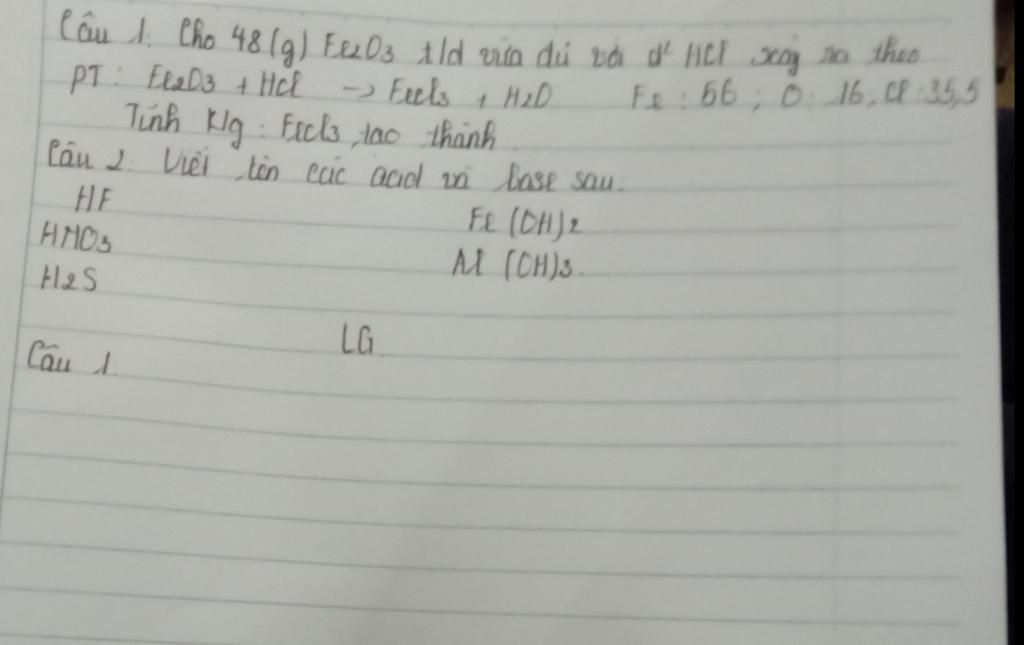 Câu 1. Cho 48(g) Fe2O3 t/d vừa đủ với d² HCl xảy ra theo
PT: Fe2O3 + HCl -> FeCl3 + H2O Fe: 56; O: 16; Cl: 35,5
Tính K/g: FeCl3 tạo thành.
Câu 2. Viết tên các acid và base sau.
HF Fe(OH)2
HNO3 Al(OH)3.
H2S
LG
Câu 1.